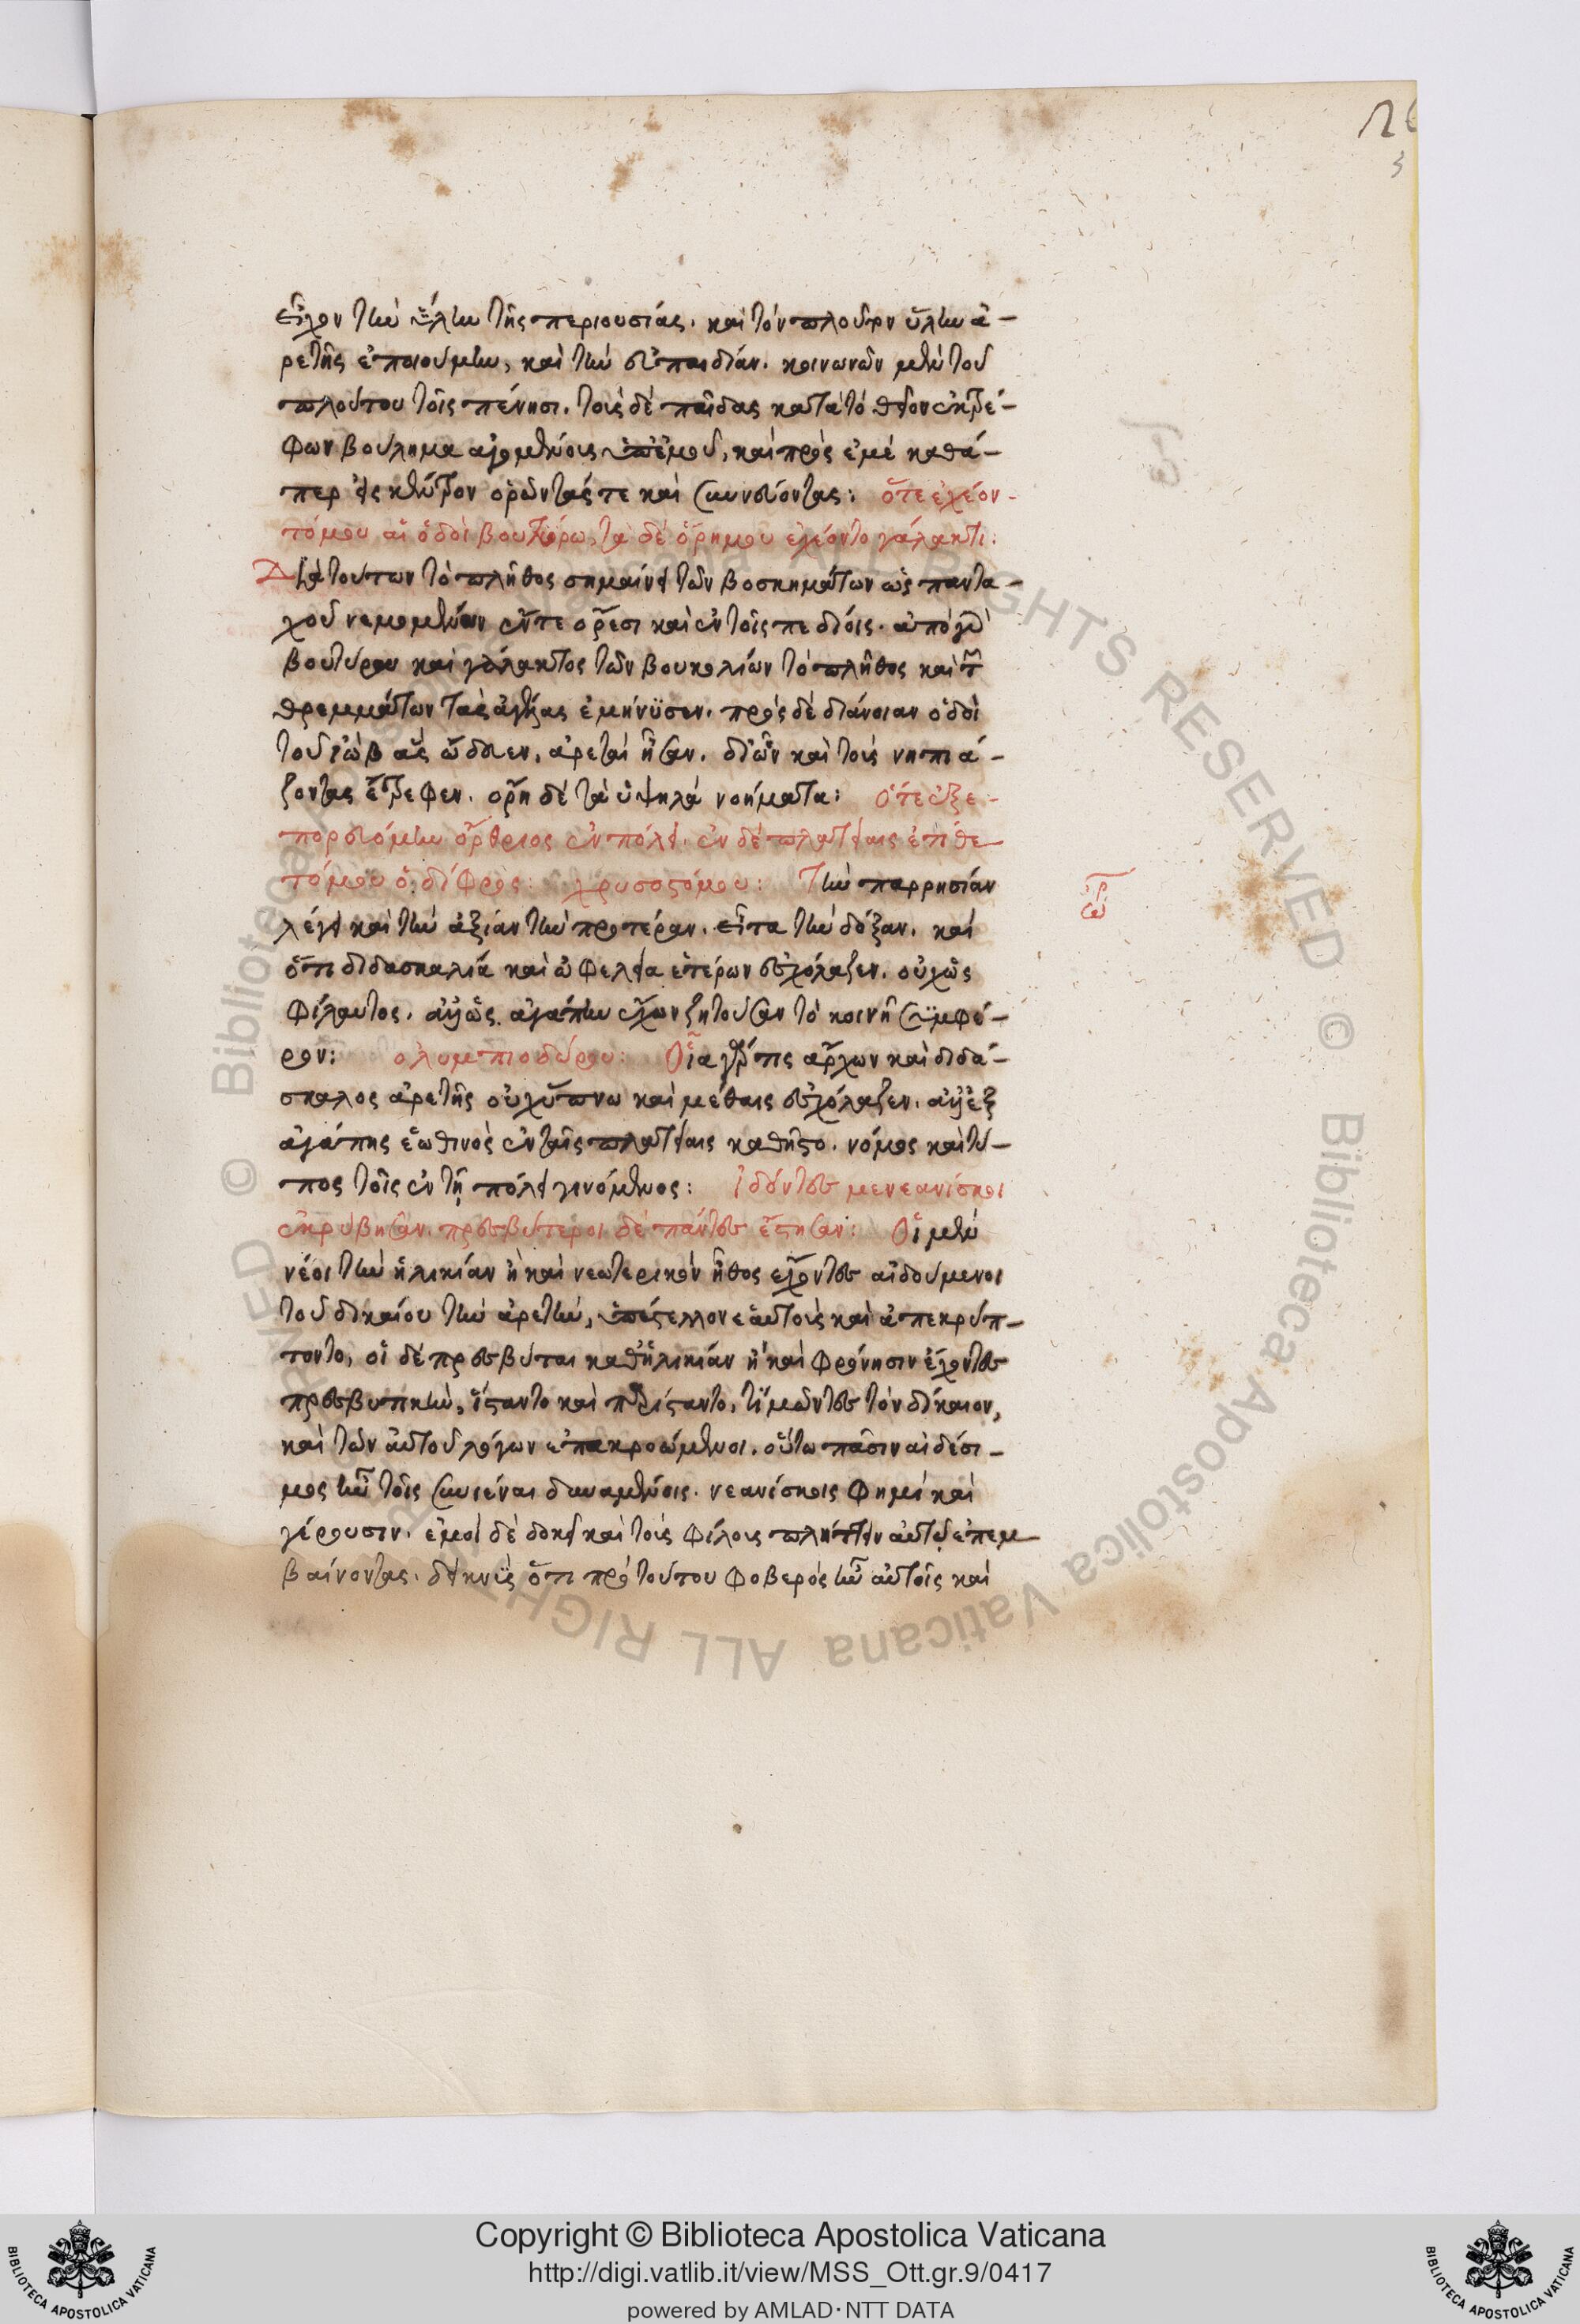 εἶχον τὴν ὕλην τῆς περιουσίας. καὶ τὸν πλοῦτον ὕλην ἀ-
ρετῆς ἐποιούμην, καὶ τὴν εὐπαιδίαν. κοινωνῶν μὲν τοῦ
πλούτου τοῖς πένησι. τοὺς δὲ παῖδας κατὰ τὸ θεῖον ἐκτρέ-
φων βούλημα ἀγομένους ὑπ' ἐμοῦ, καὶ πρὸς ἐμὲ καθά-
περ εἰς κέντρον ὁρῶντάς τε καὶ συννεύοντας: ὅτε ἐχέον-
τό μου αἱ ὁδοὶ βουτύρῳ, τὰ δὲ ὄρη μου ἐχέοντο γάλακτι:
Διὰ τούτων τὸ πλῆθος σημαίνει τῶν βοσκημάτων ὡς παντα-
χοῦ νεμομένων ἔν τε ὄρεσι καὶ ἐν τοῖς πεδίοις. ἀπὸ γὰρ
βουτύρου καὶ γάλακτος τῶν βουκολίων τὸ πλῆθος καὶ τῶν
θρεμμάτων τὰς ἀγέλας ἐμήνυσεν. πρὸς δὲ διάνοιαν ὁδοὶ
τοῦ ἰὼβ ἃς ὥδευεν, ἀρεταὶ ἦσαν. δι' ὧν καὶ τοὺς νηπιά-
ζοντας ἔτρεφεν. ὄρη δὲ τὰ ὑψηλὰ νοήματα: ὅτε ἐξε-
πορευόμην ὄρθριος ἐν πόλει. ἐν δὲ πλατείαις ἐτίθε
τό μου ὁ δίφρος: χρυσοστόμου: Τὴν παρρησίαν
λέγει καὶ τὴν ἀξίαν τὴν προτέραν. εἶτα τὴν δόξαν. καὶ
ὅτι διδασκαλίᾳ καὶ ὠφελείᾳ ἑτέρων ἐσχόλαζεν. οὐχ ὡς
φίλαυτος. ἀλλ' ὡς ἀγάπην ἔχων ζητοῦσαν τὸ κοινῇ συμφέ-
ρον: ὀλυμπιοδώρου: Οἷα γάρ τις ἄρχων καὶ διδά-
σκαλος ἀρετῆς οὐχ ὕπνῳ καὶ μέθαις ἐσχόλαζεν. ἀλλ' ἐξ
ἀγάπης ἑωθινὸς ἐν ταῖς πλατείαις καθῆστο. νόμος καὶ τύ-
πος τοῖς ἐν τῇ πόλει γινόμενος: ἰδόντες με νεανίσκοι
ἐκρύβησαν. πρεσβύτεροι δὲ πάντες ἔστησαν: Οἱ μὲν
νέοι τὴν ἡλικίαν ἢ καὶ νεωτερικὸν ἦθος ἔχοντες αἰδούμενοι
τοῦ δικαίου τὴν ἀρετήν, ὑπέστελλον ἑαυτοὺς καὶ ἀπεκρύπ-
τοντο, οἱ δὲ πρεσβῦται καθ' ἡλικίαν ἢ καὶ φρόνησιν ἔχοντες
πρεσβυτικήν, ἵσταντο καὶ περιίσταντο, τιμῶντες τὸν δίκαιον,
καὶ τῶν αὐτοῦ λόγων ἐπακροώμενοι. οὕτω πᾶσιν αἰδέσι-
μος ἦν τοῖς συνιέναι δυναμένοις. νεανίσκοις φημὶ καὶ
γέρουσιν. ἐμοὶ δὲ δοκεῖ καὶ τοὺς φίλους πλήττειν αὐτῷ ἐπεμ-
βαίνοντας. δεικνὺς ὅτι πρὸ τούτου φοβερὸς ἦν αὐτοῖς καὶ